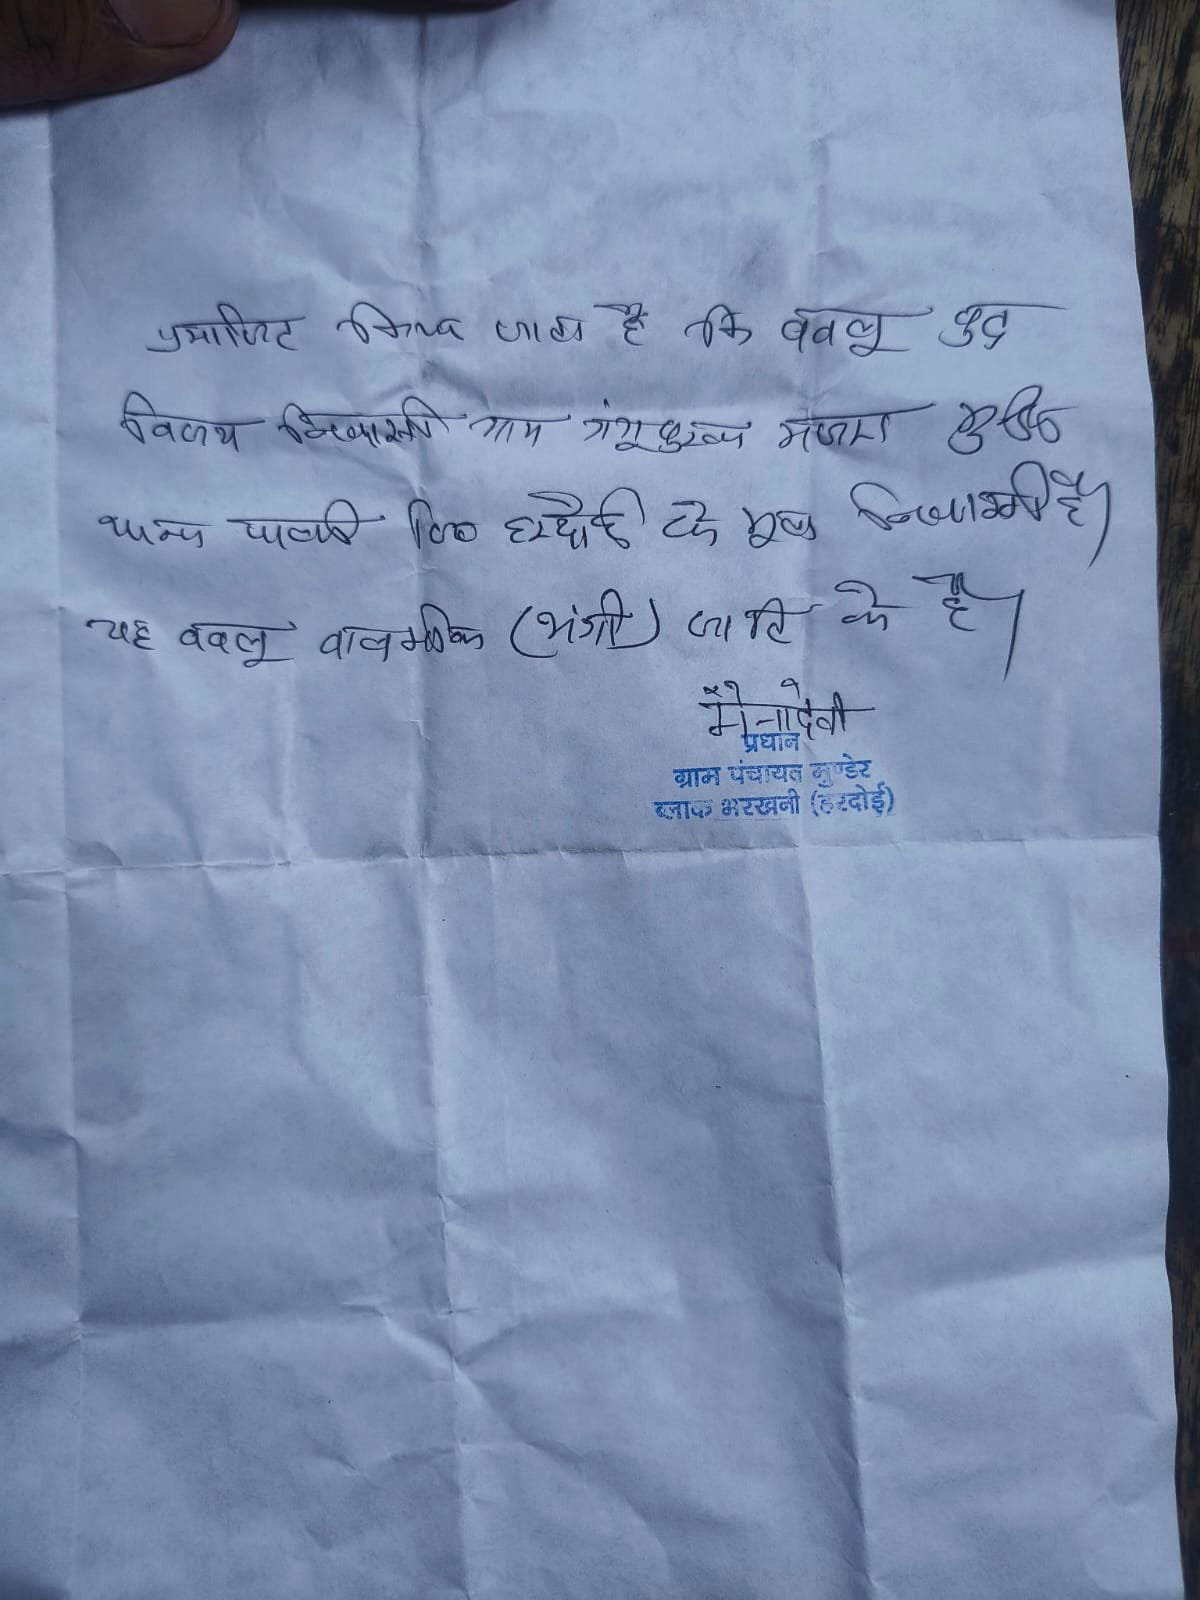 प्रमाणित किया जाता है कि बबलू पुत्र
विजय निवासी ग्राम गंगूपुरवा मजरा
थाना पाली जि० हरदोई के मूल निवासी है।
यह बबलू वालमीकि (भंगी) जाति के है।
मैनादेवी
प्रधान
ग्राम पंचायत मुण्डेर
ब्लाक भरखनी (हरदोई)